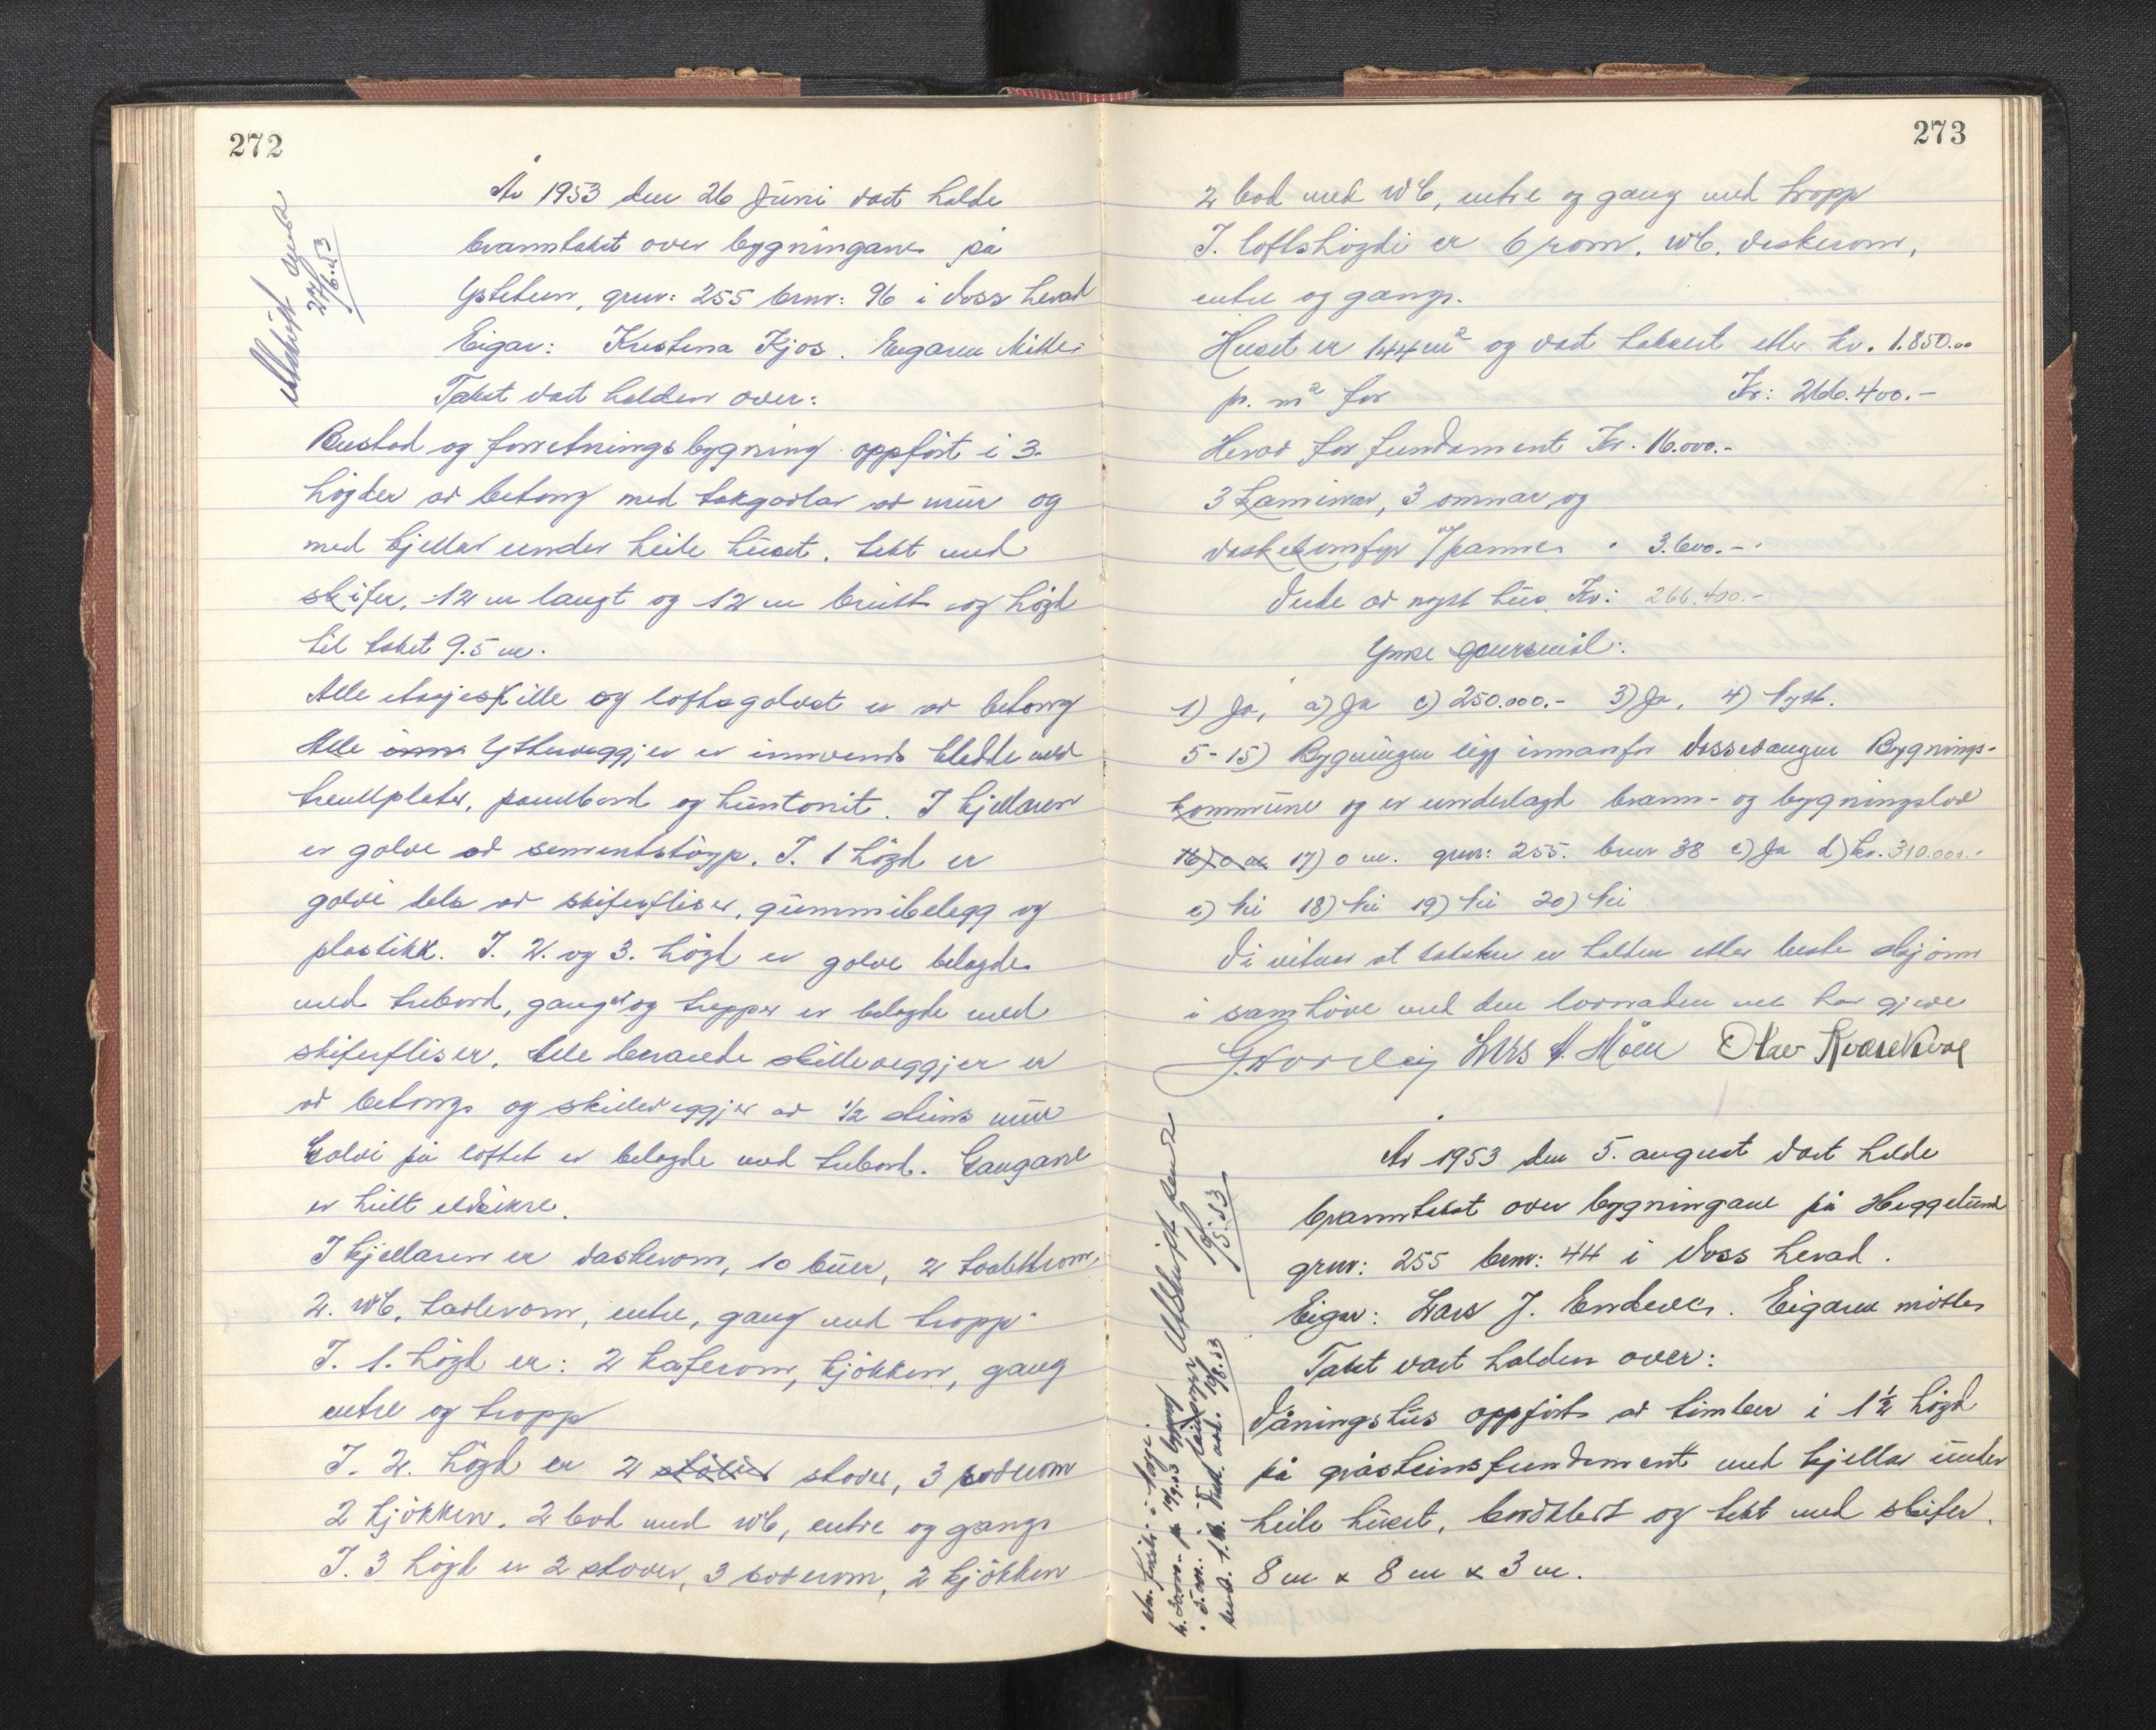 272
År 1953 den 26 Juni vart halde
branntakst over bygningane på
Ystetun, gnr: 255 bnr: 96 i Voss herad
Eigar: Kristina Kjos. Eigaren møtte
Takst vart halden over:
Utskrift sendt
27/6-53
Bustad og forretningsbygning oppført i 3.
høgder av betong med takgavlar av mur og
med kjellar under heile huset. tekt med
skifer, 12 m langt og 12 m breitt og høgd
til taket 9.5 m.
Alle etasjeskille og loftsgolvet er av betong
Alle inn Ytterveggjer er innvends kledde med
treullplater, panelbord og huntonit. I kjellaren
er golve av sementstøyp. I. 1 høgd er
golvi dels av skiferfliser, gummibelegg og
plastikk. I. 2. og 3. høgd er golve belagde
med trebord, ganger og trapper er belagde med
skiferfliser. Alle berande skilleveggjer er
av betong og skilleveggjer av 1/2 steins mur
Golvi på loftet er belagde med trebord. Gangane
er heilt eldsikre.
I kjellaren er vaskerom, 10 buer, 2 toalettrom,
2. WC, tørkerom, entre, gang med tropp
I. 1. høgd er: 2 kaferom, kjøkken, gang
entre og tropp
I. 2. høgd er 2 stover, 3 soverom
2 kjøkken. 2 bod med WC, entre og gang
I. 3 høgd er 2 stover, 3 soverom, 2 kjøkken
273
2 bod med WC, entre og gang med tropp
I. loftshøgdi er 6 rom. WC. vaskerom,
entre og gang.
Huset er 144 m² og vart taksert etter kr. 1.850.00
pr. m² for Kr: 266.400.-
Herav for fundament Kr. 16.000.-
3 kaminar, 3 omnar og
vaskekomfyr m/panne " 3.600.-
Verde av nytt hus Kr: 266.400.-
Ymse spursmål:
1) Ja, a) Ja c) 250.000.- 3) Ja, 4) Nytt.
5-15) Bygningen ligg innanfor Vossevangen Bygnings-
kommune og er underlagd brann- og bygningslov
16) 0 m 17) 0 m. gnr: 255. bnr 38 c) Ja d) Kr. 310.000.-
e) Nei 18) Nei 19) Nei 20) Nei
Vi vitnar at taksten er halden etter beste skjønn
i samhøve med den lovnaden me har gjeve
Lars A. Møen Olav Kvarekval
År 1953 den 5. august vart halde
branntakst over bygningane på Heggelund
gnr: 255 bnr: 44 i Voss herad.
Eigar: Lars J. Endeve. Eigaren møtte
Takst vart halden over:
Utskrift sendt
Våningshus oppført av timber i 1 1/2 høgd
på gråsteinsfundament med kjellar under
heile huset, bordkledt og tekt med skifer.
8 m x 8 m x 3 m.